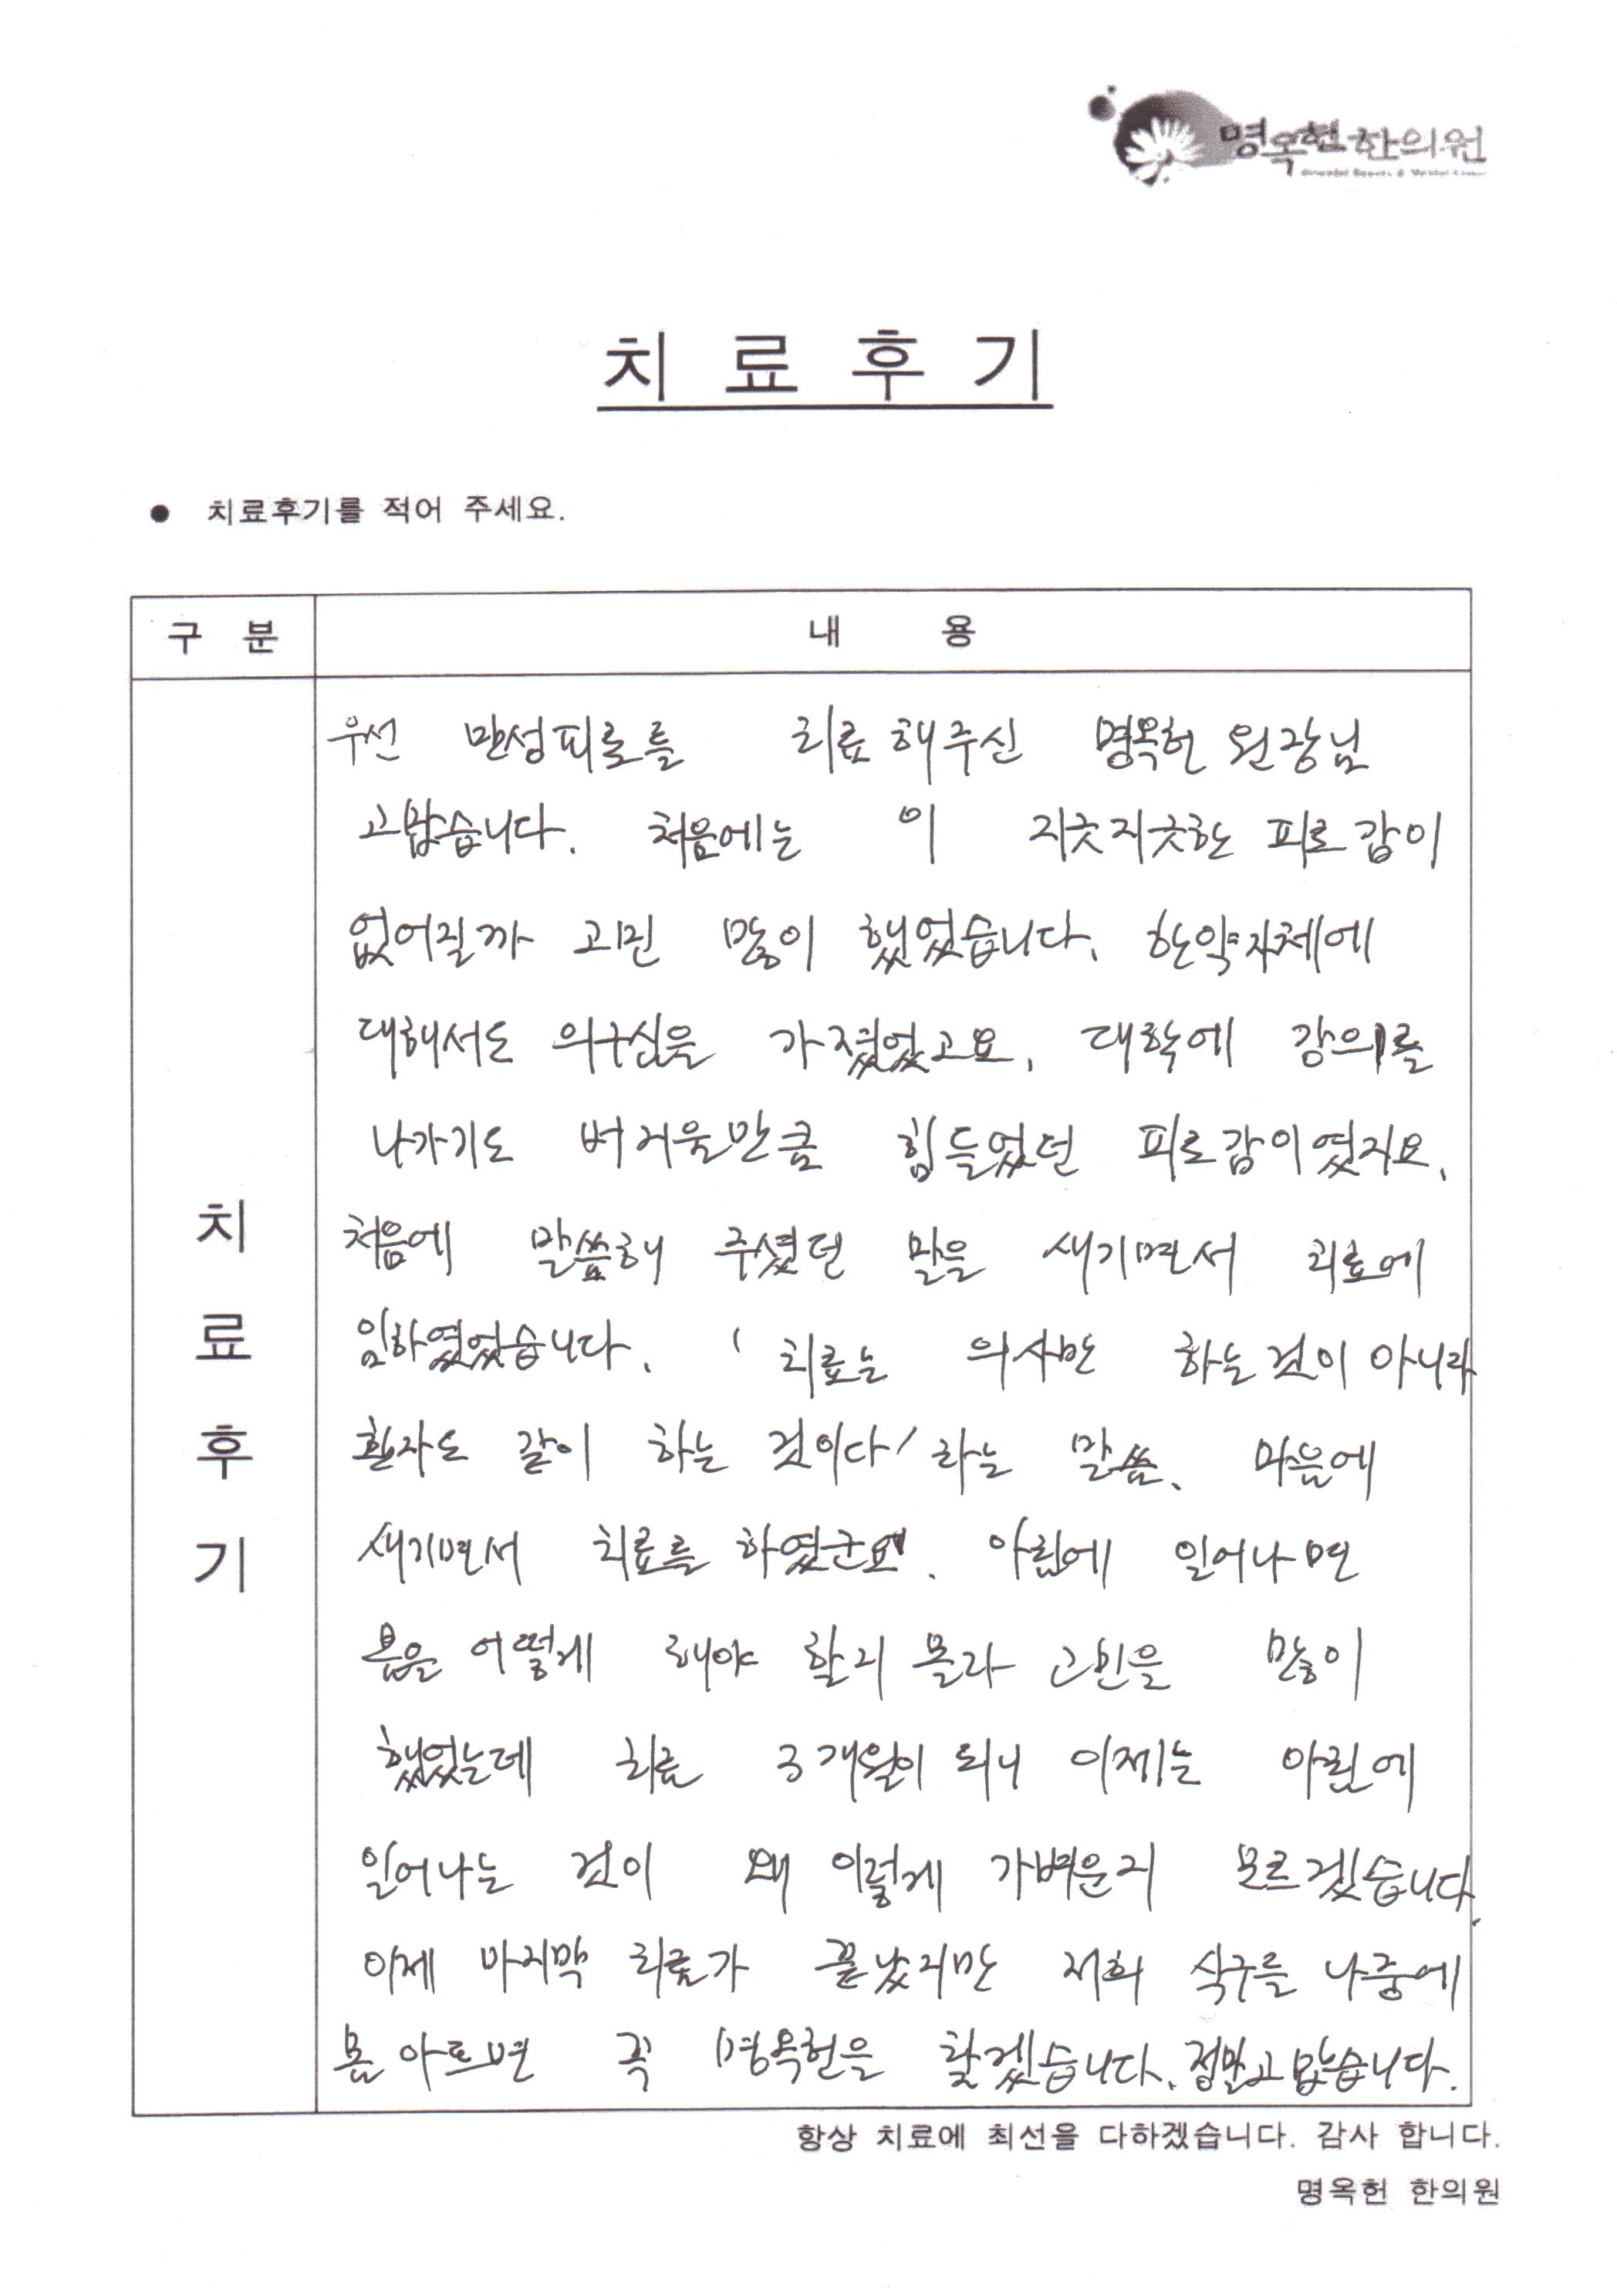 명옥헌한의원
치 료 후 기
● 치료후기를 적어 주세요.
구 분
내 용
치
료
후
기
우선 만성피로를 치료해주신 명옥헌 원장님
고맙습니다. 처음에는 이 지긋지긋한 피로감이
없어질까 고민 많이 했었습니다. 한약자체에
대해서도 의구심을 가졌었고요. 대학에 강의를
나가기도 버거울만큼 힘들었던 피로감이였지요.
처음에 말씀해 주셨던 말을 새기면서 치료에
임하였었습니다. ' 치료는 의사만 하는것이 아니라
환자도 같이 하는 것이다' 라는 말씀. 마음에
새기면서 치료를 하였군요. 아침에 일어나면
몸을 어떻게 해야 할지 몰라 고민을 많이
했었는데 치료 3개월이 되니 이제는 아침에
일어나는 것이 왜 이렇게 가벼운지 모르겠습니다.
이제 마지막 치료가 끝났지만 저희 식구를 나중에
몸 아프면 꼭 명옥헌을 찾겠습니다. 정말고맙습니다.
항상 치료에 최선을 다하겠습니다. 감사 합니다.
명옥헌 한의원